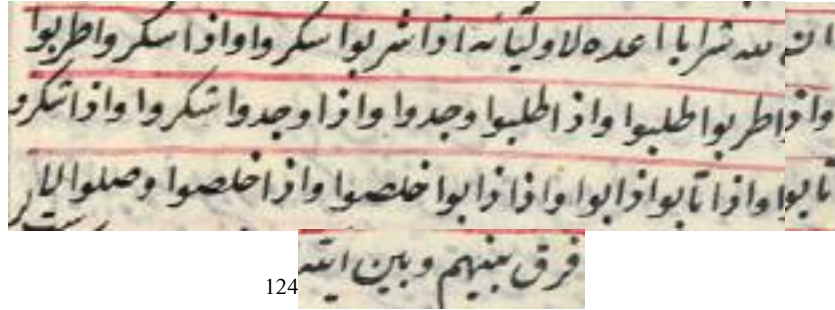 ان لله شرابا اعده لاوليائه اذا شربوا سكروا واذا سكروا طربوا
واذا طربوا طلبوا واذا طلبوا وجدوا واذا وجدوا شكروا واذا شكروا
تابوا واذا تابوا ذابوا واذا ذابوا خلصوا واذا خلصوا وصلوا لا
فرق بينهم وبين الله
124